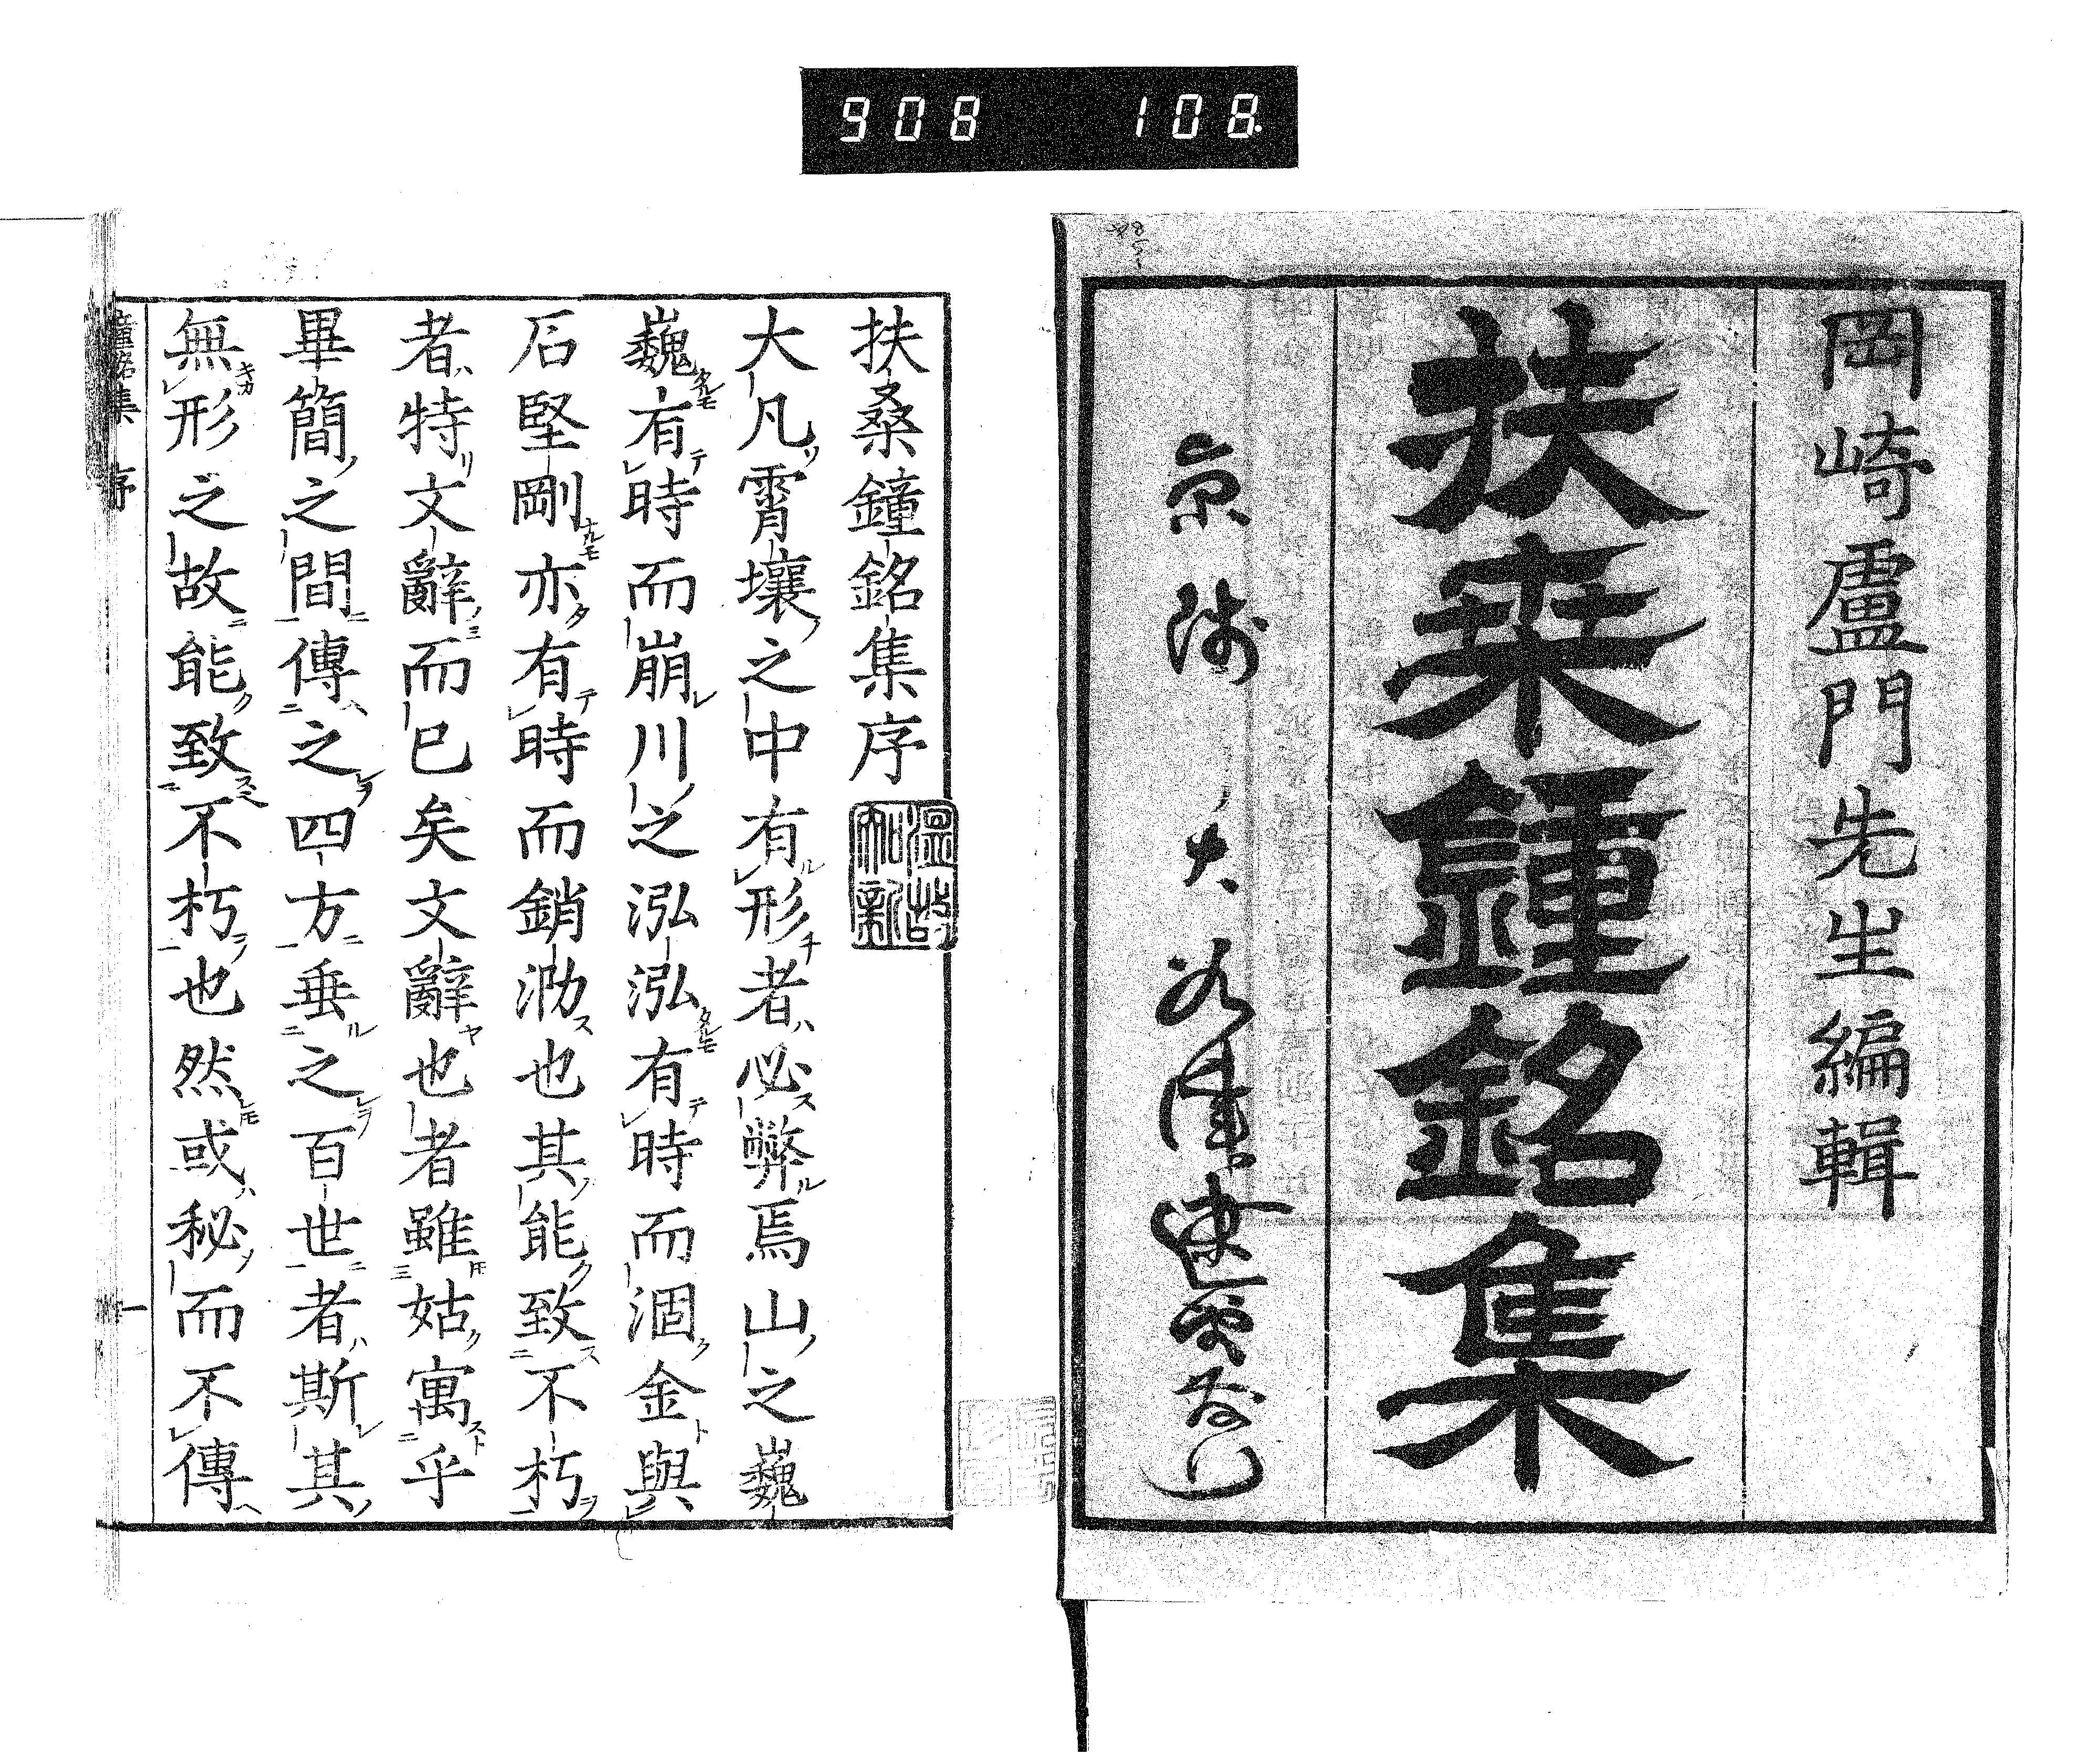 908 108
岡崎盧門先生編輯
扶桒鐘銘集
扶桑鐘銘集序
温故知新
大凡霄壤之中有形者必弊焉山之巍
巍有時而崩川之泓泓有時而涸金與
石堅剛亦有時而銷泐也其能致不朽
者特文辭而已矣文辭也者雖姑寓乎
畢簡之間傳之四方垂之百世者斯其
無形之故能致不朽也然或秘而不傳
鐘銘集 序 一